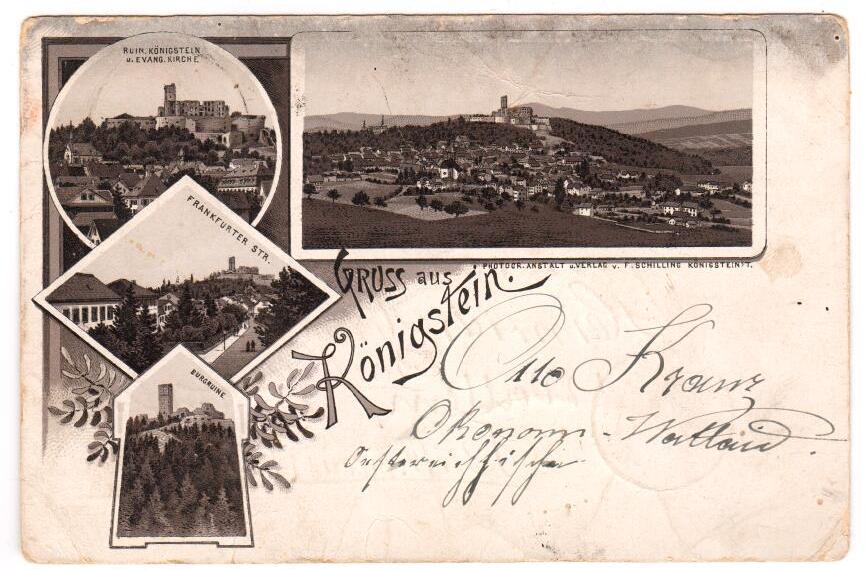 RUIN. KÖNIGSTEIN
u. EVANG. KIRCHE
FRANKFURTER STR.
BURGRUINE
PHOTOGR. ANSTALT u. VERLAG v. F. SCHILLING KÖNIGSTEIN i/T.
GRUSS aus
Königstein.
Otto Kranz